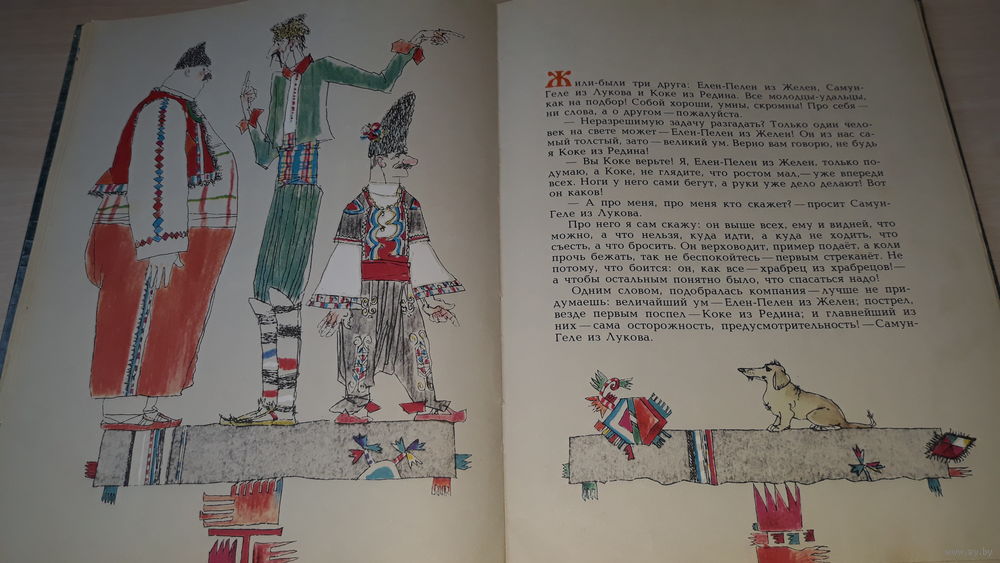 Жили-были три друга: Елен-Пелен из Желен, Самун-
Геле из Лукова и Коке из Редина. Все молодцы-удальцы,
как на подбор! Собой хороши, умны, скромны! Про себя —
ни слова, а о другом — пожалуйста.
— Неразрешимую задачу разгадать? Только один чело-
век на свете может — Елен-Пелен из Желен! Он из нас са-
мый толстый, зато — великий ум. Верно вам говорю, не будь
я Коке из Редина!
— Вы Коке верьте! Я, Елен-Пелен из Желен, только по-
думаю, а Коке, не глядите, что ростом мал,— уже впереди
всех. Ноги у него сами бегут, а руки уже дело делают! Вот
он каков!
— А про меня, про меня кто скажет? — просит Самун-
Геле из Лукова.
Про него я сам скажу: он выше всех, ему и видней, что
можно, а что нельзя, куда идти, а куда не ходить, что
съесть, а что бросить. Он верховодит, пример подаёт, а коли
прочь бежать, так не беспокойтесь — первым стреканёт. Не
потому, что боится: он, как все — храбрец из храбрецов!—
а чтобы остальным понятно было, что спасаться надо!
Одним словом, подобралась компания — лучше не при-
думаешь: величайший ум — Елен-Пелен из Желен; пострел,
везде первым поспел — Коке из Редина; и главнейший из
них — сама осторожность, предусмотрительность! — Самун-
Геле из Лукова.
www.ay.by